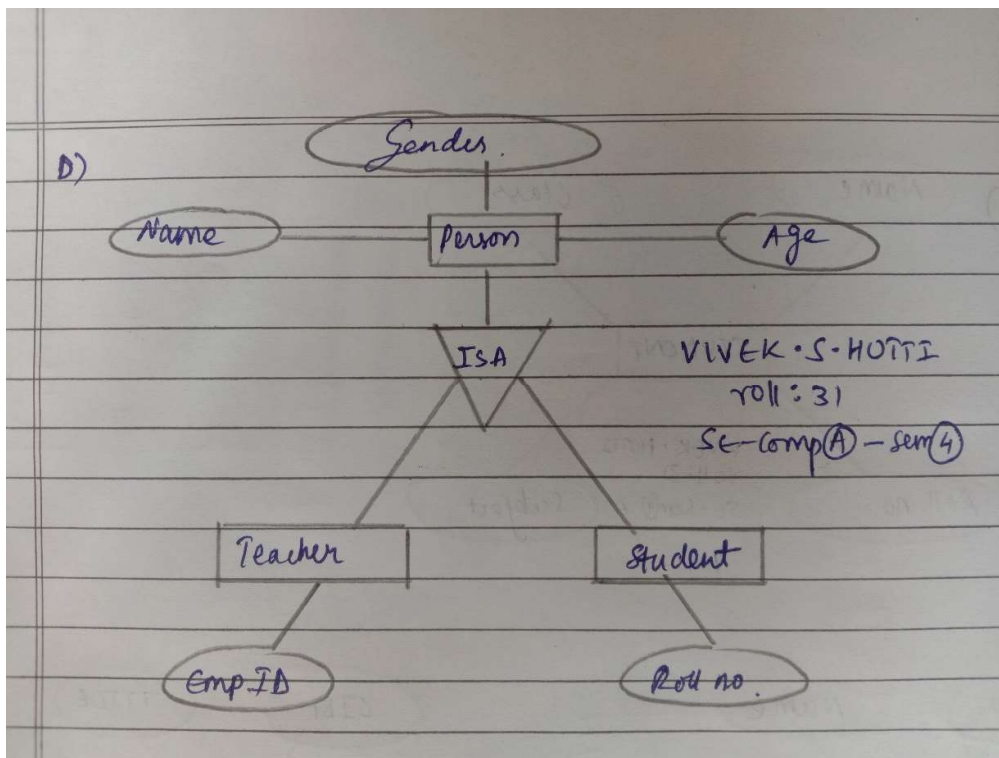 D)
Gender.
Name
Person
Age
IsA
VIVEK.S.HOTTI
roll: 31
SE-Comp A - Sem 4
Teacher
Student
Emp ID
Roll no.